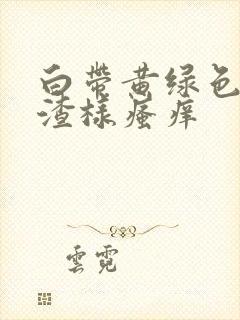 白带黄绿色
渣样瘙痒
雲霓